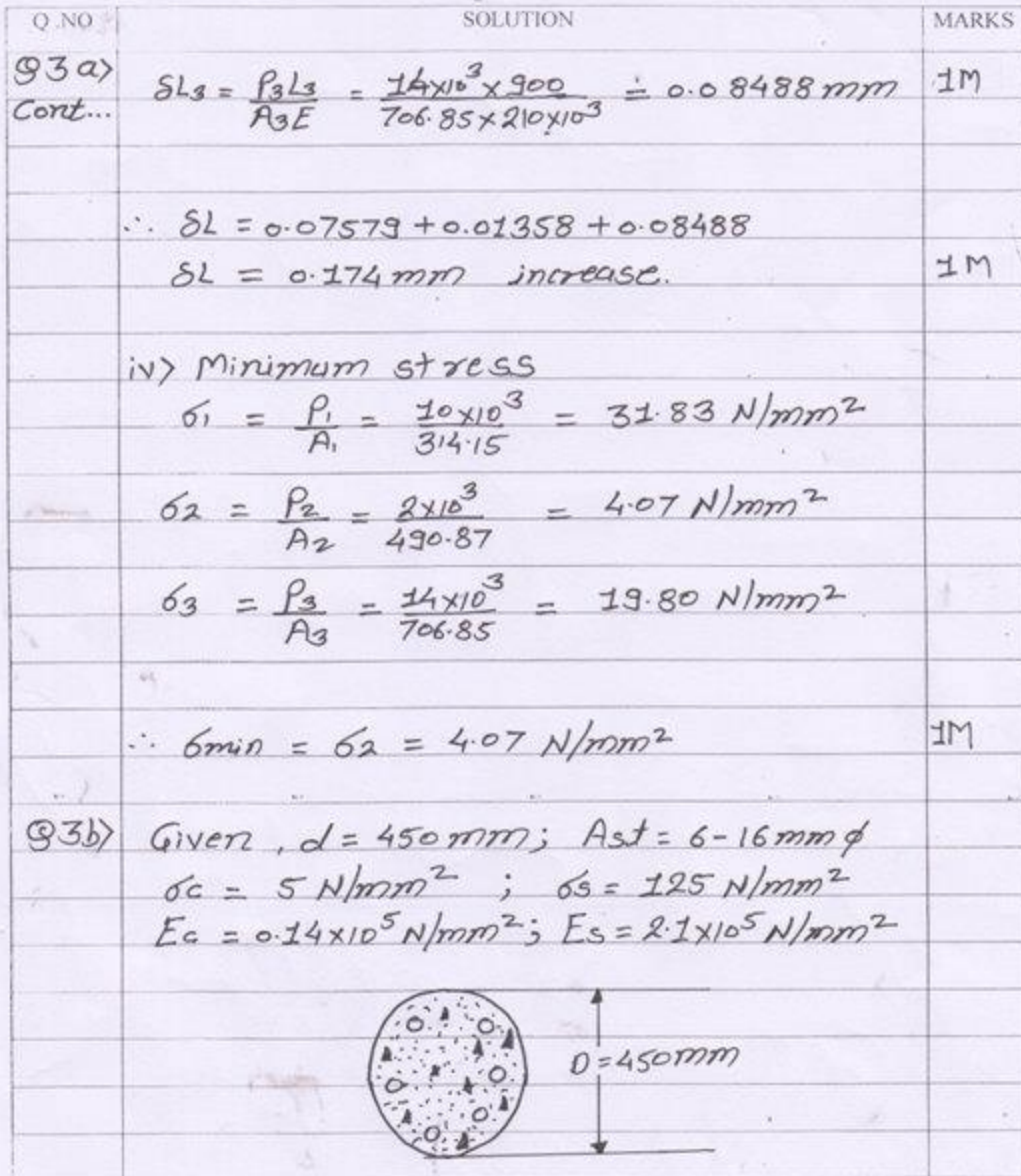 Q .NO SOLUTION MARKS
Q3 a> δL3 = P3L3/A3E = 14x10³ x 900/706.85 x 210x10³ = 0.08488 mm 1M
Cont...
∴ δL = 0.07579 + 0.01358 + 0.08488
δL = 0.174 mm increase. 1M
iv> Minimum stress
σ1 = P1/A1 = 10x10³/314.15 = 31.83 N/mm²
σ2 = P2/A2 = 2x10³/490.87 = 4.07 N/mm²
σ3 = P3/A3 = 14x10³/706.85 = 19.80 N/mm²
∴ σmin = σ2 = 4.07 N/mm² 1M
Q3b> Given, d = 450 mm; Ast = 6-16 mm ϕ
σc = 5 N/mm² ; σs = 125 N/mm²
Ec = 0.14x10⁵ N/mm²; Es = 2.1x10⁵ N/mm²
D = 450mm